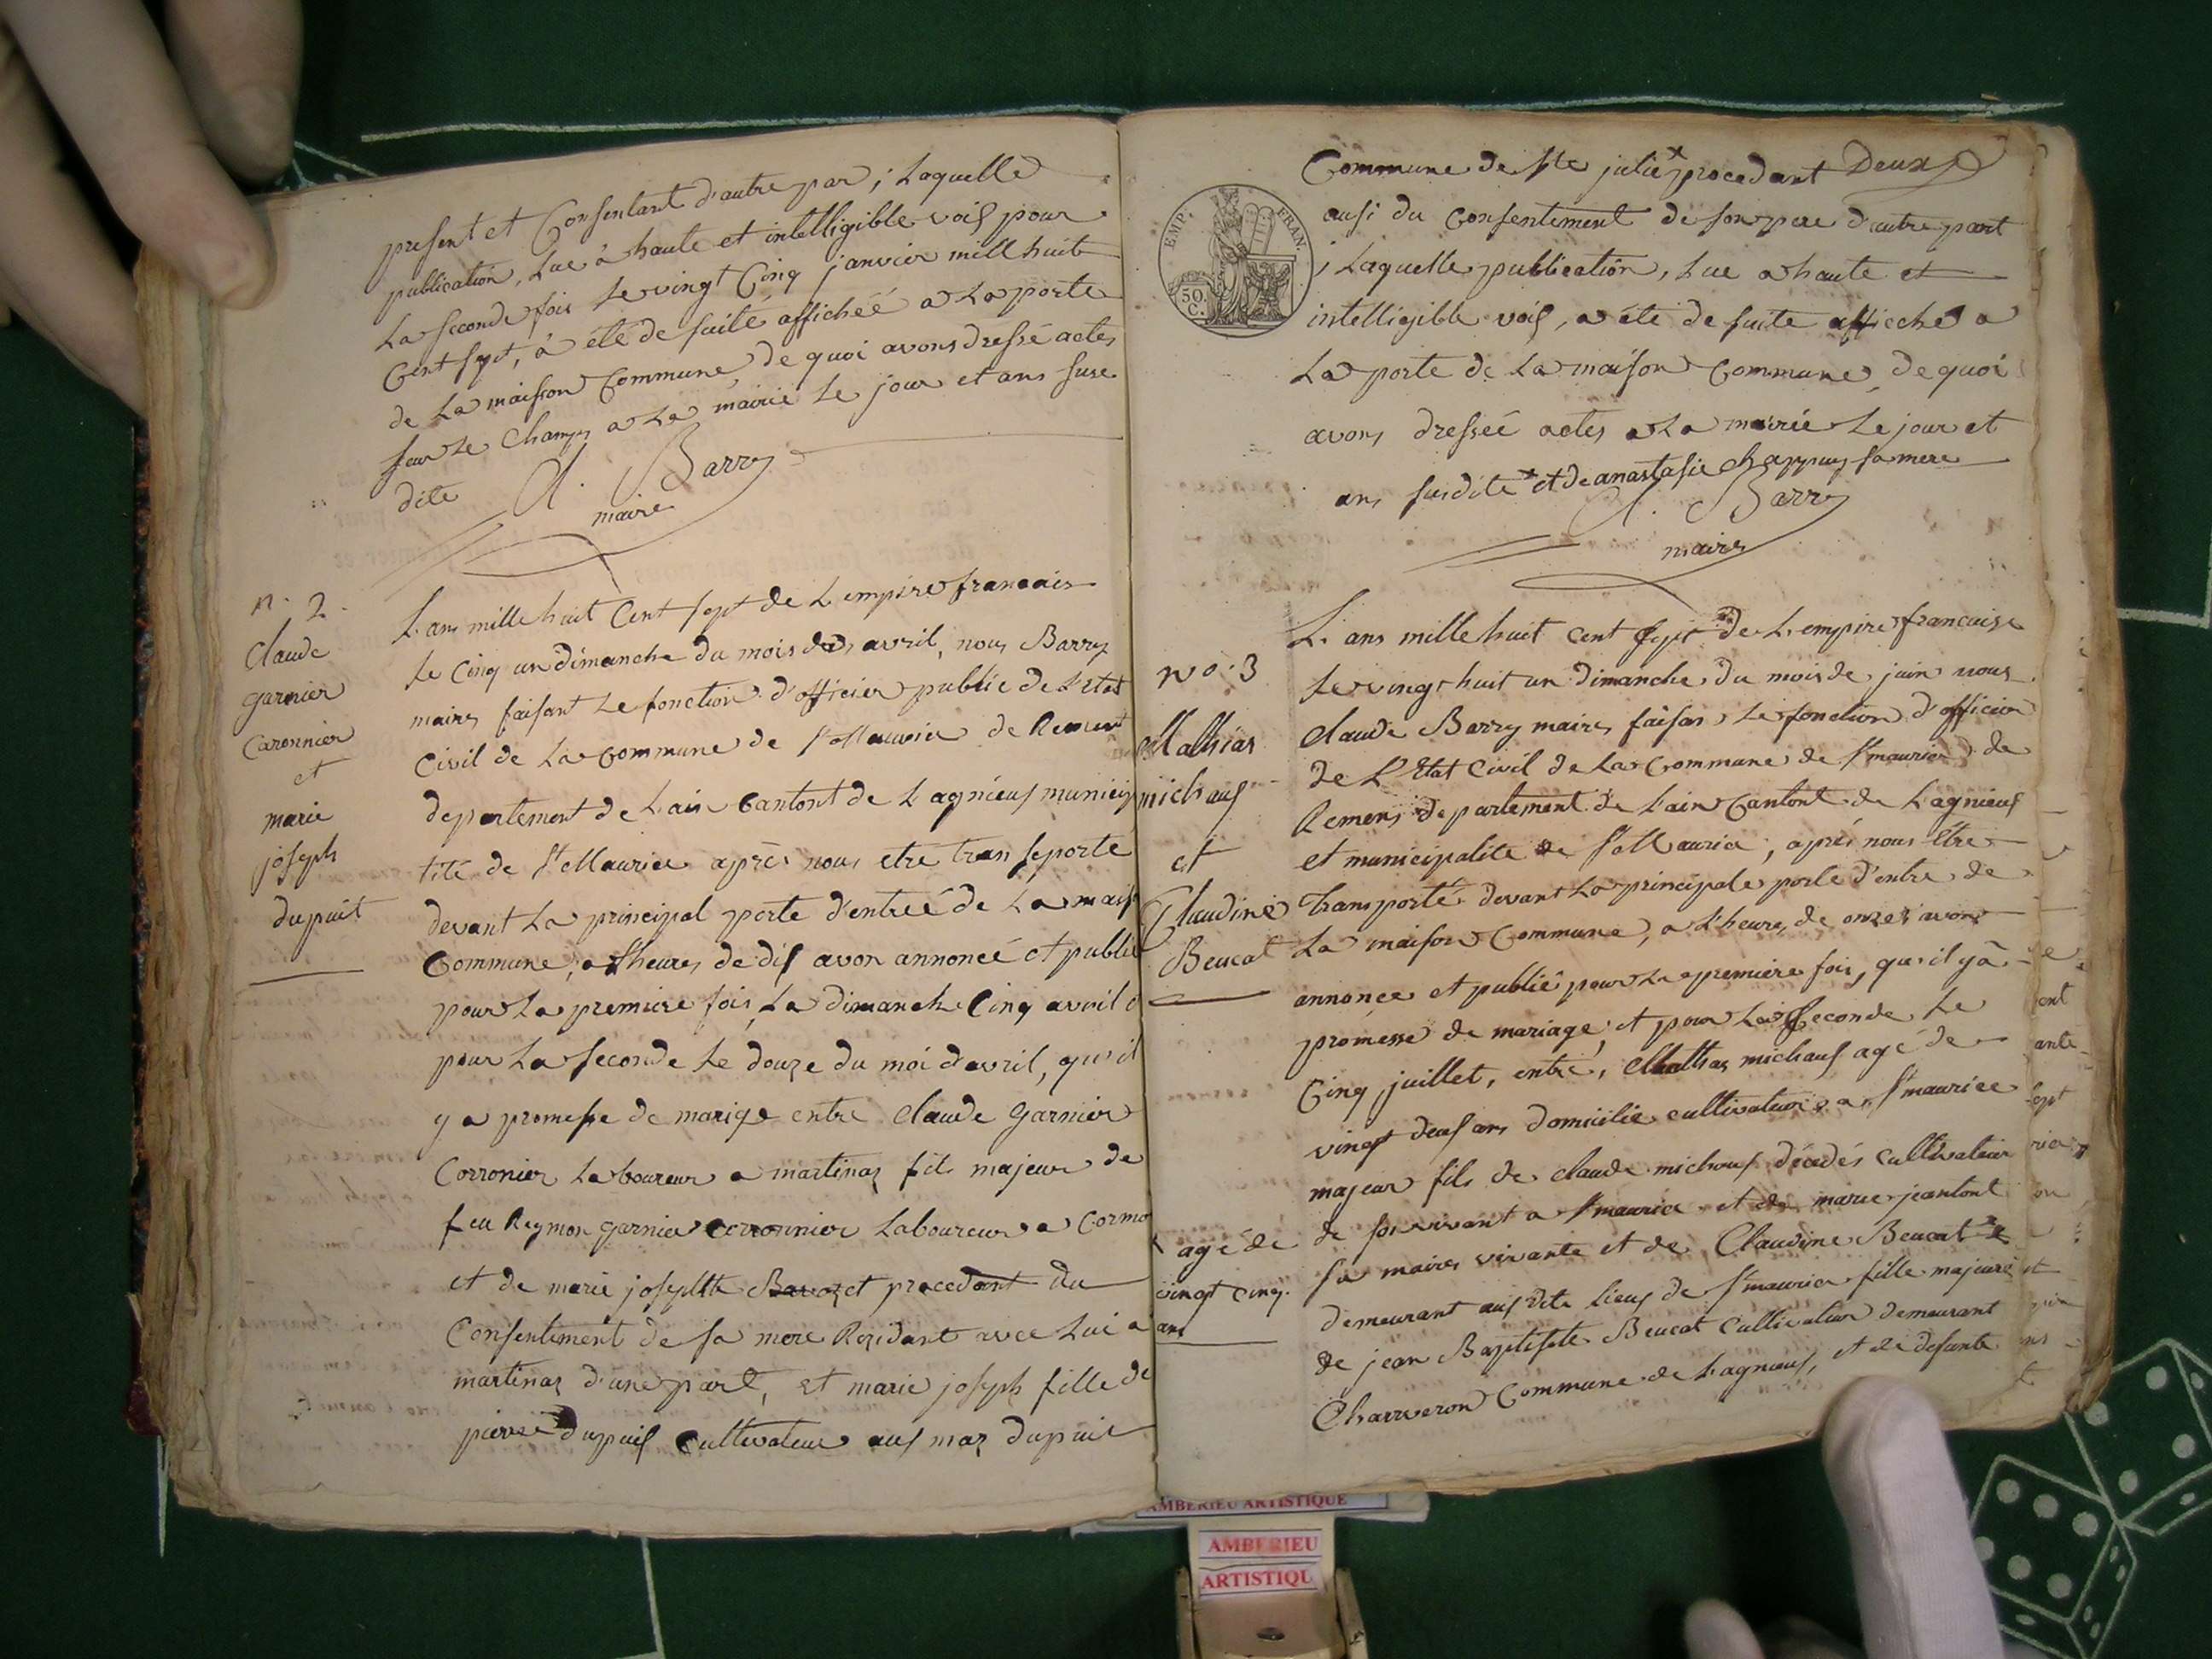 present et Consentant d'autre par ; Laquelle
publication, Lue à haute et intelligible voix pour
La seconde fois Le vingt Cinq janvier mill huit
Cent sept, à été de suite affichéé a La porte
de La maison Commune, de quoi avons dressé actes
sur Le Champ a La mairie Le jour et ans suse
dite Cl. Barry
maire
n. 2
Claude
garnier
Caronnier
et
marie
joseph
dupuit
L'ans mille huit Cent sept de L'empire francais
Le Cinq un dimanche du mois des avril, nous Barry
maire faisant Le fonction d'officier public de L'Etat
Civil de La Commune de St Maurice de Remens
departement de L'ain Cantont de Lagnieux municip
tité de St Maurice après nous etre transporté
devant La principal porte d'entréé de La mais
Commune, a Lheures de dix avon annoncé et publié
pour La premiere fois, La dimanche Cinq avril
pour La seconde Le douze du moi d'avril, qu'il
y a promesse de marige entre Claude Garnier
Corronier Laboureur a martinaz fils majeur de
feu Reymon garnier corronnier Laboureur a Cormo
et de marie josephte Bavozet procedant du
Consentement de sa mere Residant avec Lui a
martinaz d'une part, et marie joseph fille de
pierre dupuis Cultivateur aux maz dupuit
Commune de Ste julie × procedant Deux
ausi du Consentement de son pere d'autre part
; Laquelle publication, Lue a haute et
intelligible voix, a été de suite affiche a
La porte de La maison Commune, de quoi
avons dresséé actes a La mairie Le jour et
ans susdite × et de anastasie Chappuy sa mere
Cl. Barry
maire
EMP. FRAN.
50.
C.
no. 3
Mathias
michaux
et
Claudine
Beucat
L'ans mille huit Cent sept de L'empire francaise
Le vingt huit un dimanche du mois de juin nous
Claude Barry maire, faisan Le fonction d'officier
de L'Etat Civil de La Commune de St maurice de
Remens departement de L'ain Cantont de Lagnieux
et municipalite de St Maurice, aprés nous Etre
transporté devant La principale porte d'entre de
La maison Commune, a L'heure, de onze avons
annonce et publié pour La premiere fois, qu'il y à
promesse de mariage, et pour La Seconde Le
Cinq juillet, entre, Mathias michaux agé de
vingt deux ans domicilie cultivateur a St maurice
majeur fils de claude michaux décédés cultivateur
de son vivant a St maurice et de marie jeantont
sa maire vivante et de Claudine Beucat ×
agé de
vingt cinq
ans
demeurant aux dite lieux de St maurice fille majeure
de jean Baptiste Beucat Cultivateur demeurant
Charveron Commune de Lagnieux, et de defunte
AMBERIEU ARTISTIQUE
AMBERIEU
ARTISTIQU